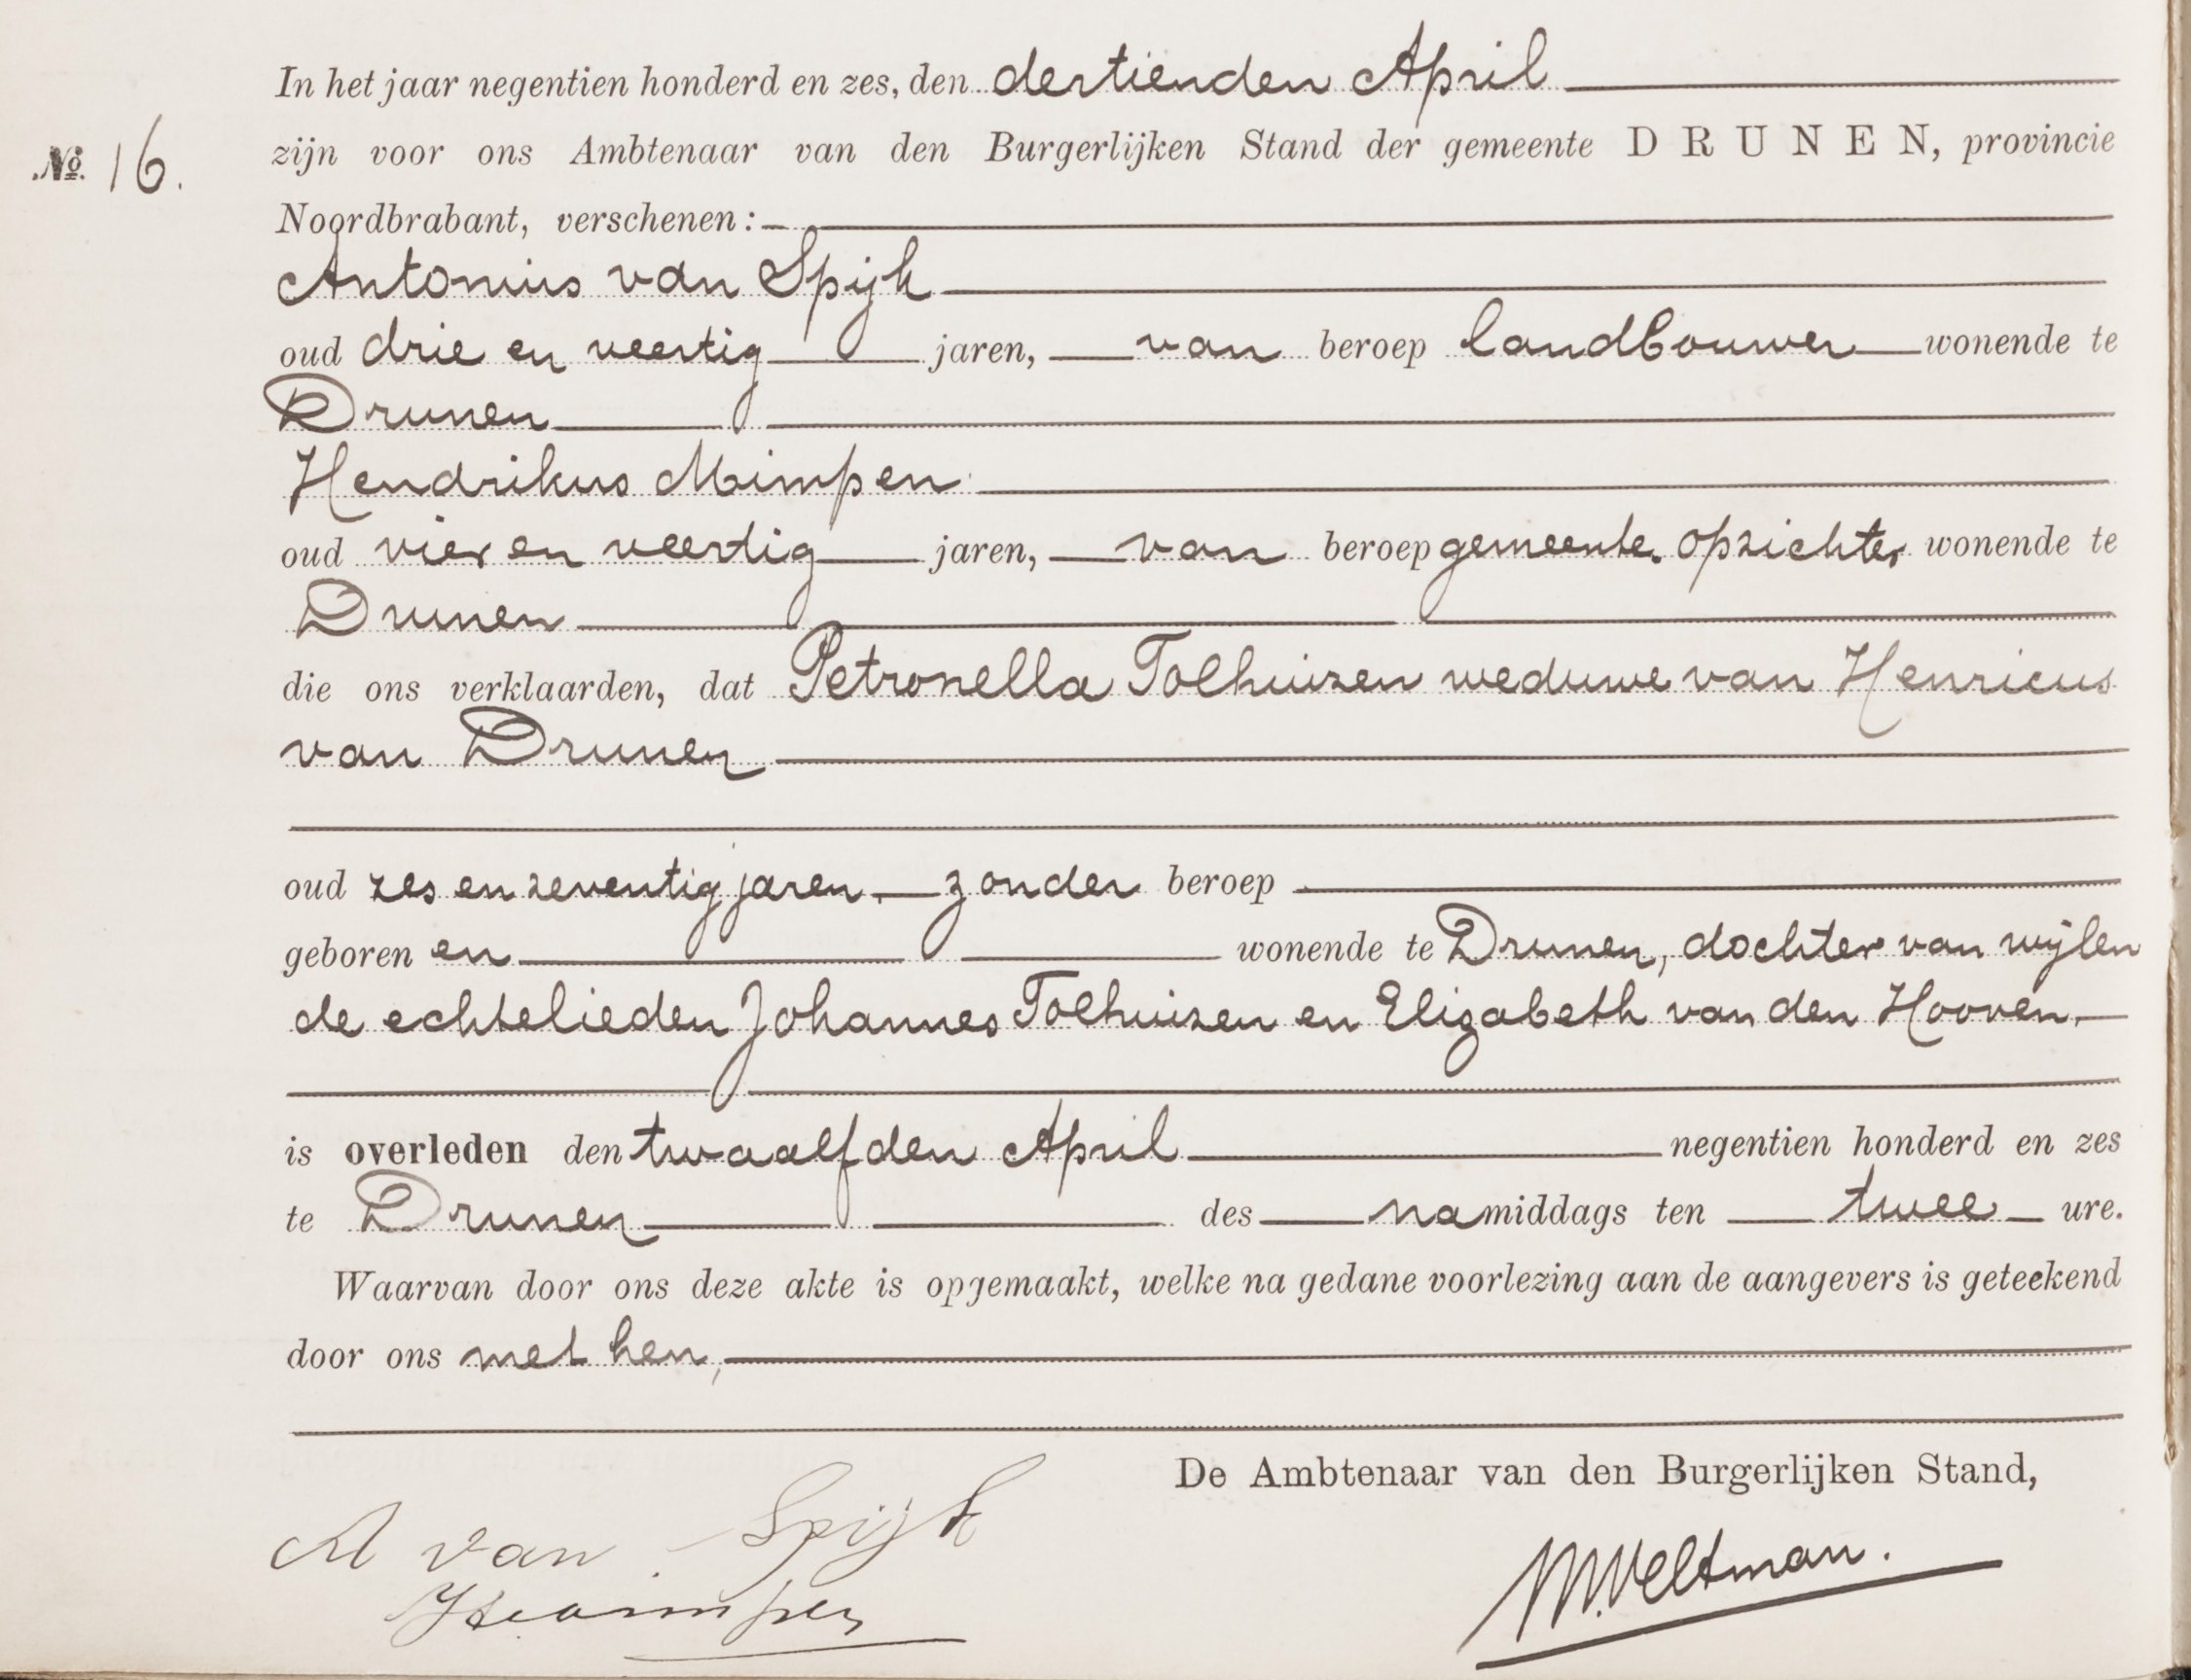 In het jaar negentien honderd en zes, den dertienden April
No. 16.
zijn voor ons Ambtenaar van den Burgerlijken Stand der gemeente DRUNEN, provincie
Noordbrabant, verschenen:
Antonius van Spijk
oud drie en veertig jaren, van beroep landbouwer wonende te
Drunen
Hendrikus Mimpen
oud vier en veertig jaren, van beroep gemeente opzichter wonende te
Drunen
die ons verklaarden, dat Petronella Tolhuizen weduwe van Henricus
van Drunen
oud zes en zeventig jaren, zonder beroep
geboren en wonende te Drunen, dochter van wijlen
de echtelieden Johannes Tolhuizen en Elizabeth van den Hooven.
is overleden den twaalfden April negentien honderd en zes
te Drunen des namiddags ten twee ure.
Waarvan door ons deze akte is opgemaakt, welke na gedane voorlezing aan de aangevers is geteekend
door ons met hen,
De Ambtenaar van den Burgerlijken Stand,
A van Spijk
M. Veltman.